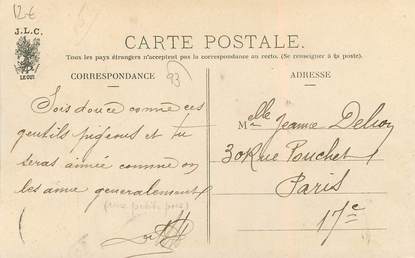 12€
J.L.C.
LE GUI
CARTE POSTALE.
Tous les pays étrangers n'acceptent pas la correspondance au recto. (Se renseigner à la poste).
CORRESPONDANCE
93
Sois douce comme ces
gentils pigeons et tu
seras aimée comme on
les aime generalement
(aux petits pois)
ADRESSE
Melle Jeanne
30 Rue Pouchet
Paris
17e